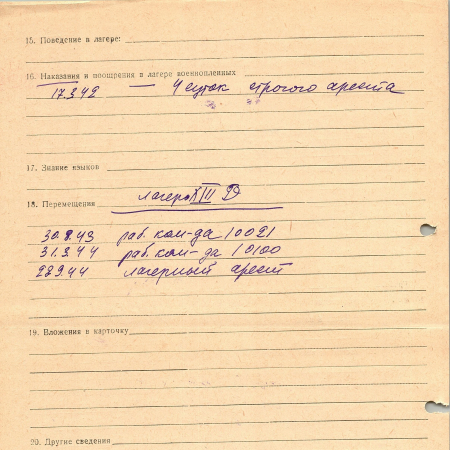 15. Поведение в лагере:
16. Наказания и поощрения в лагере военнопленных
17.3.42 — 4 суток строгого ареста
17. Знание языков
18. Перемещения лагерь XIII D
30.8.43 раб. ком-да 10021
31.3.44 раб. ком-да 10100
28.9.44 лагерный арест
19. Вложения в карточку
20. Другие сведения